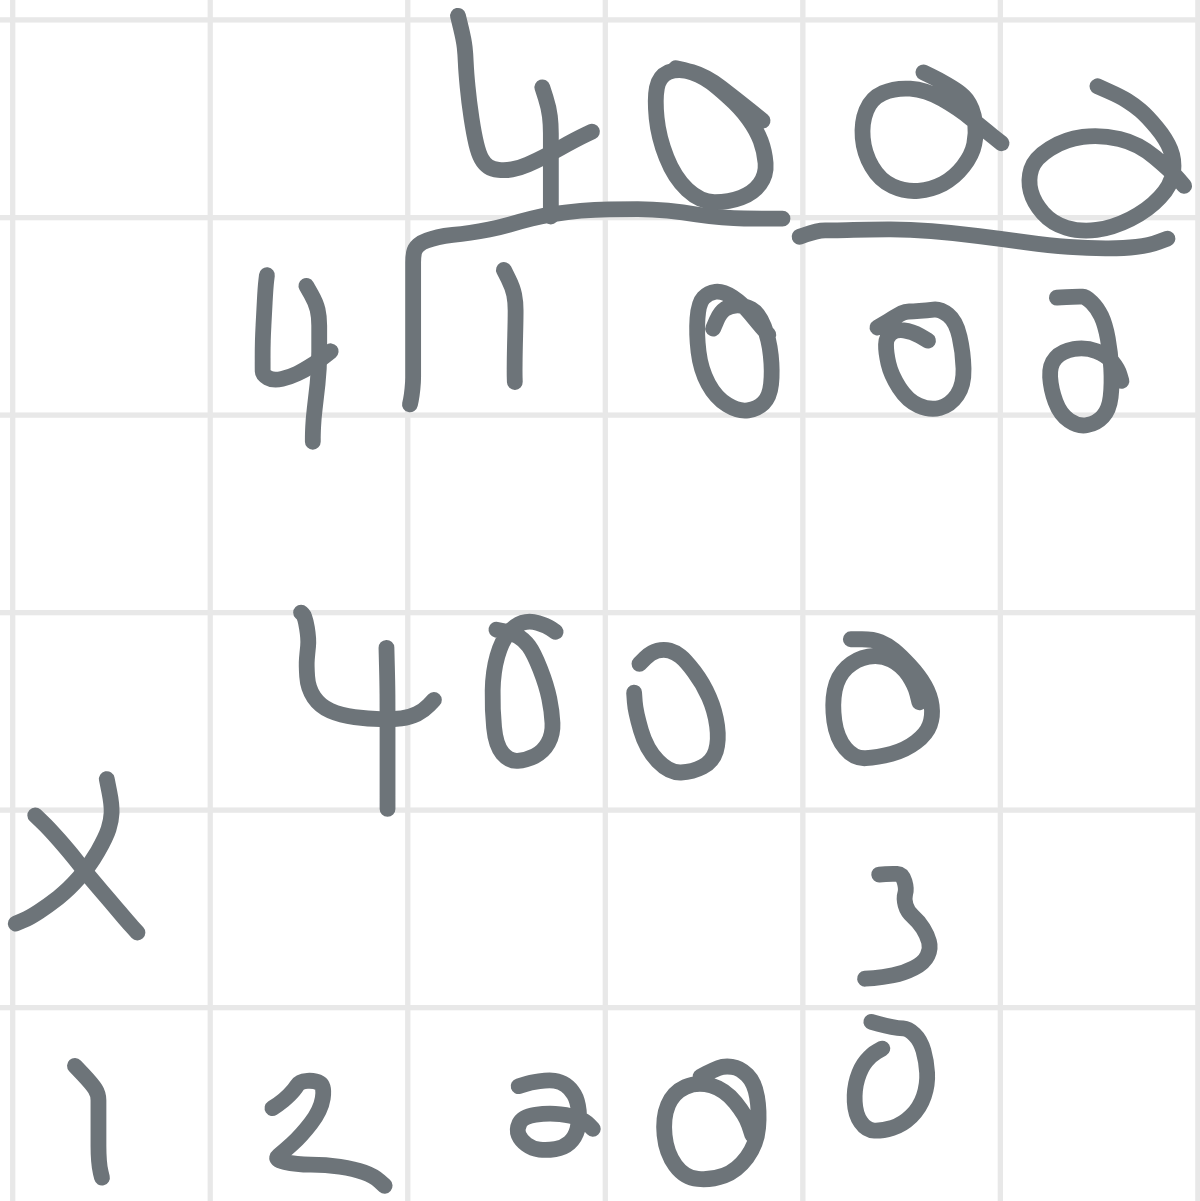 4000
4 1000
4000
× 3
12000